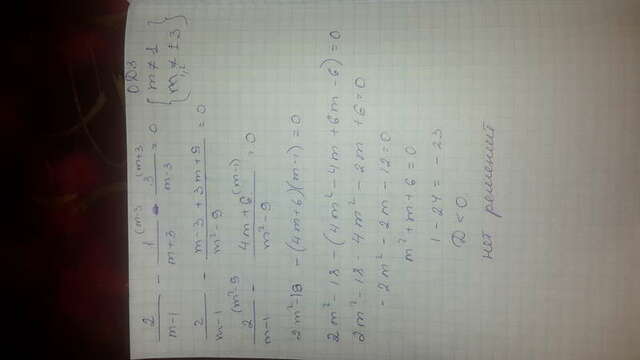 2/(m-1) - 1^(m-3)/(m+3) - 3^(m+3)/(m-3) = 0
ОДЗ
{ m ≠ 1
m₁,₂ ≠ ±3 }
2/(m-1) - (m-3+3m+9)/(m²-9) = 0
2^(m²-9)/(m-1) - (4m+6)^(m-1)/(m²-9) = 0
2m²-18 - (4m+6)(m-1) = 0
2m²-18-(4m²-4m+6m-6)=0
2m²-18-4m²-2m+6=0
-2m²-2m-12=0
m²+m+6=0
1-24=-23
D<0
нет решений